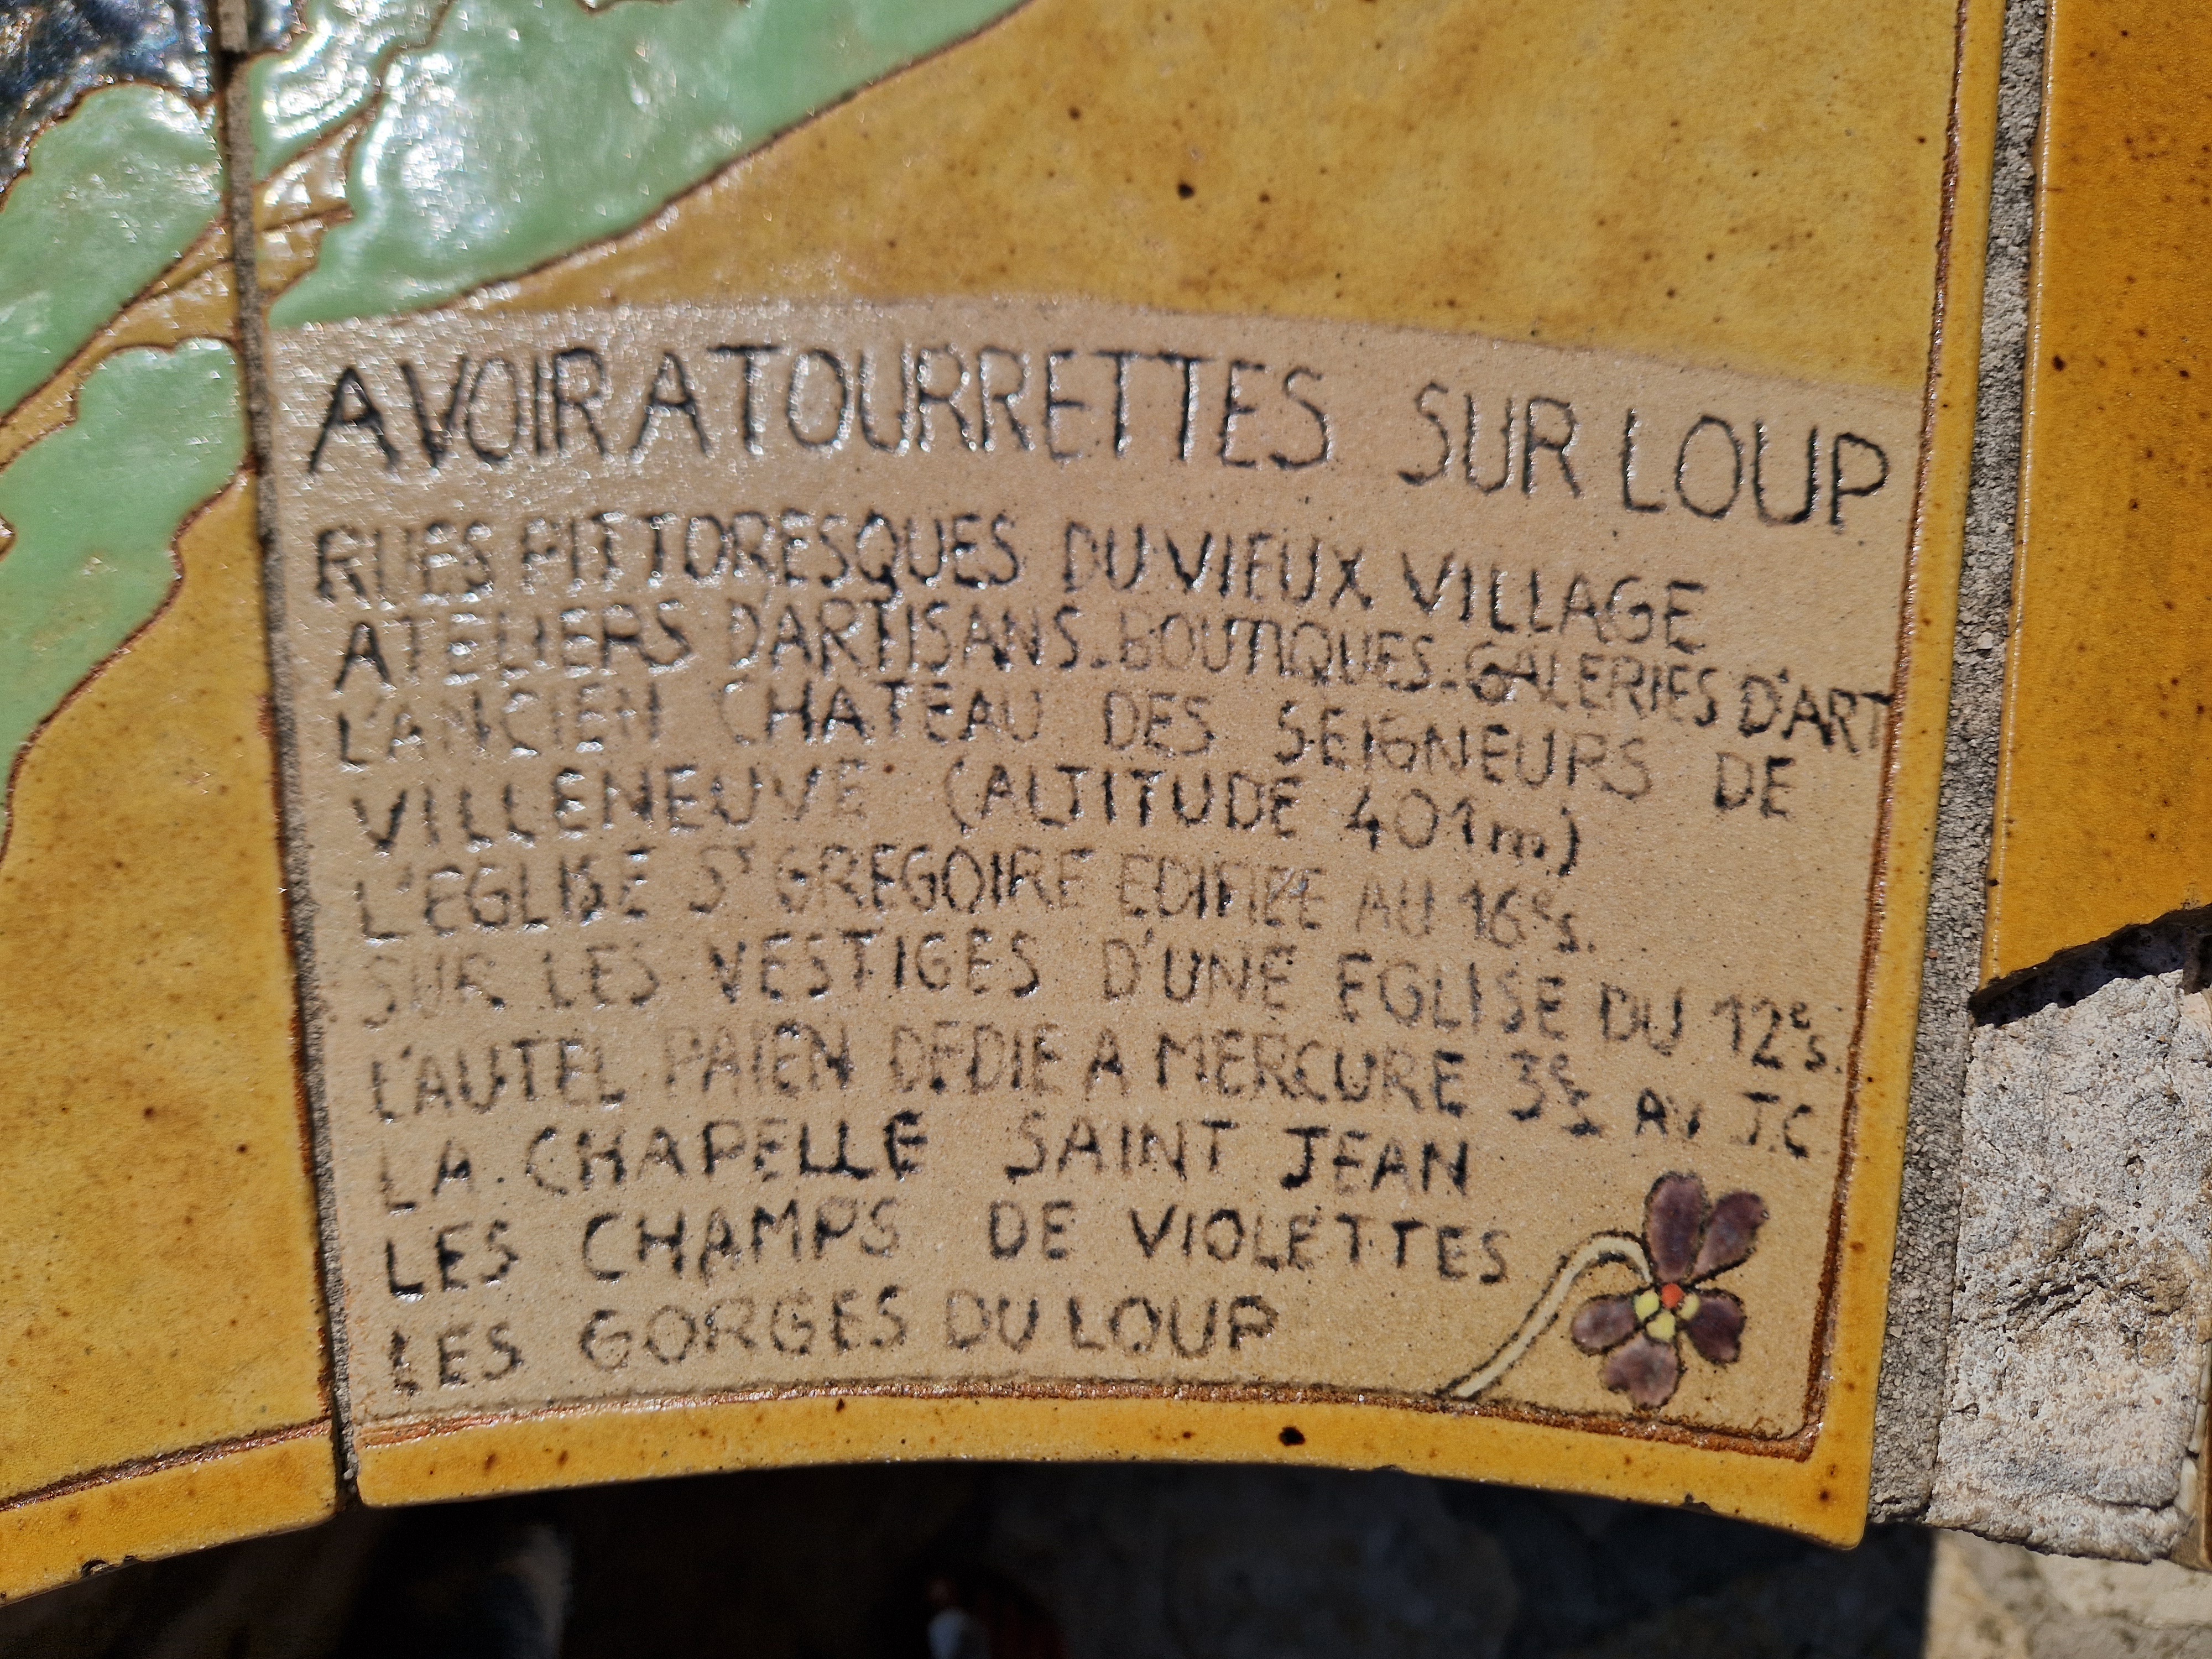 A VOIR A TOURRETTES SUR LOUP
RUES PITTORESQUES DU VIEUX VILLAGE
ATELIERS D'ARTISANS - BOUTIQUES - GALERIES D'ART
L'ANCIEN CHATEAU DES SEIGNEURS DE
VILLENEUVE (ALTITUDE 401m)
L'EGLISE St GREGOIRE EDIFIEE AU 16e s.
SUR LES VESTIGES D'UNE EGLISE DU 12e s.
L'AUTEL PAIEN DEDIE A MERCURE 3e s AV J.C
LA CHAPELLE SAINT JEAN
LES CHAMPS DE VIOLETTES
LES GORGES DU LOUP